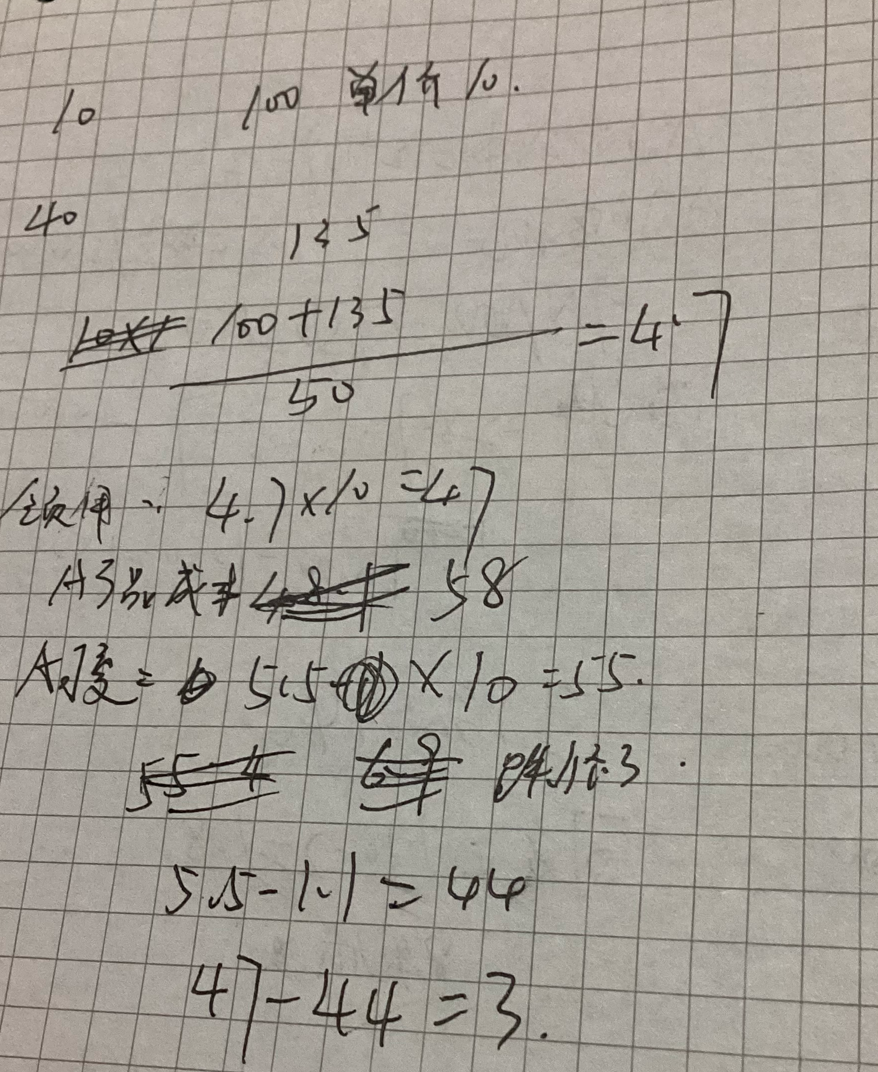 10 100 单价10.
40
135
100+135
50
=4.7
领用 4.7×10=47
A产品成本 58
A 5.5 ×10=55.
跌价3.
5.5-1.1=44
47-44=3.